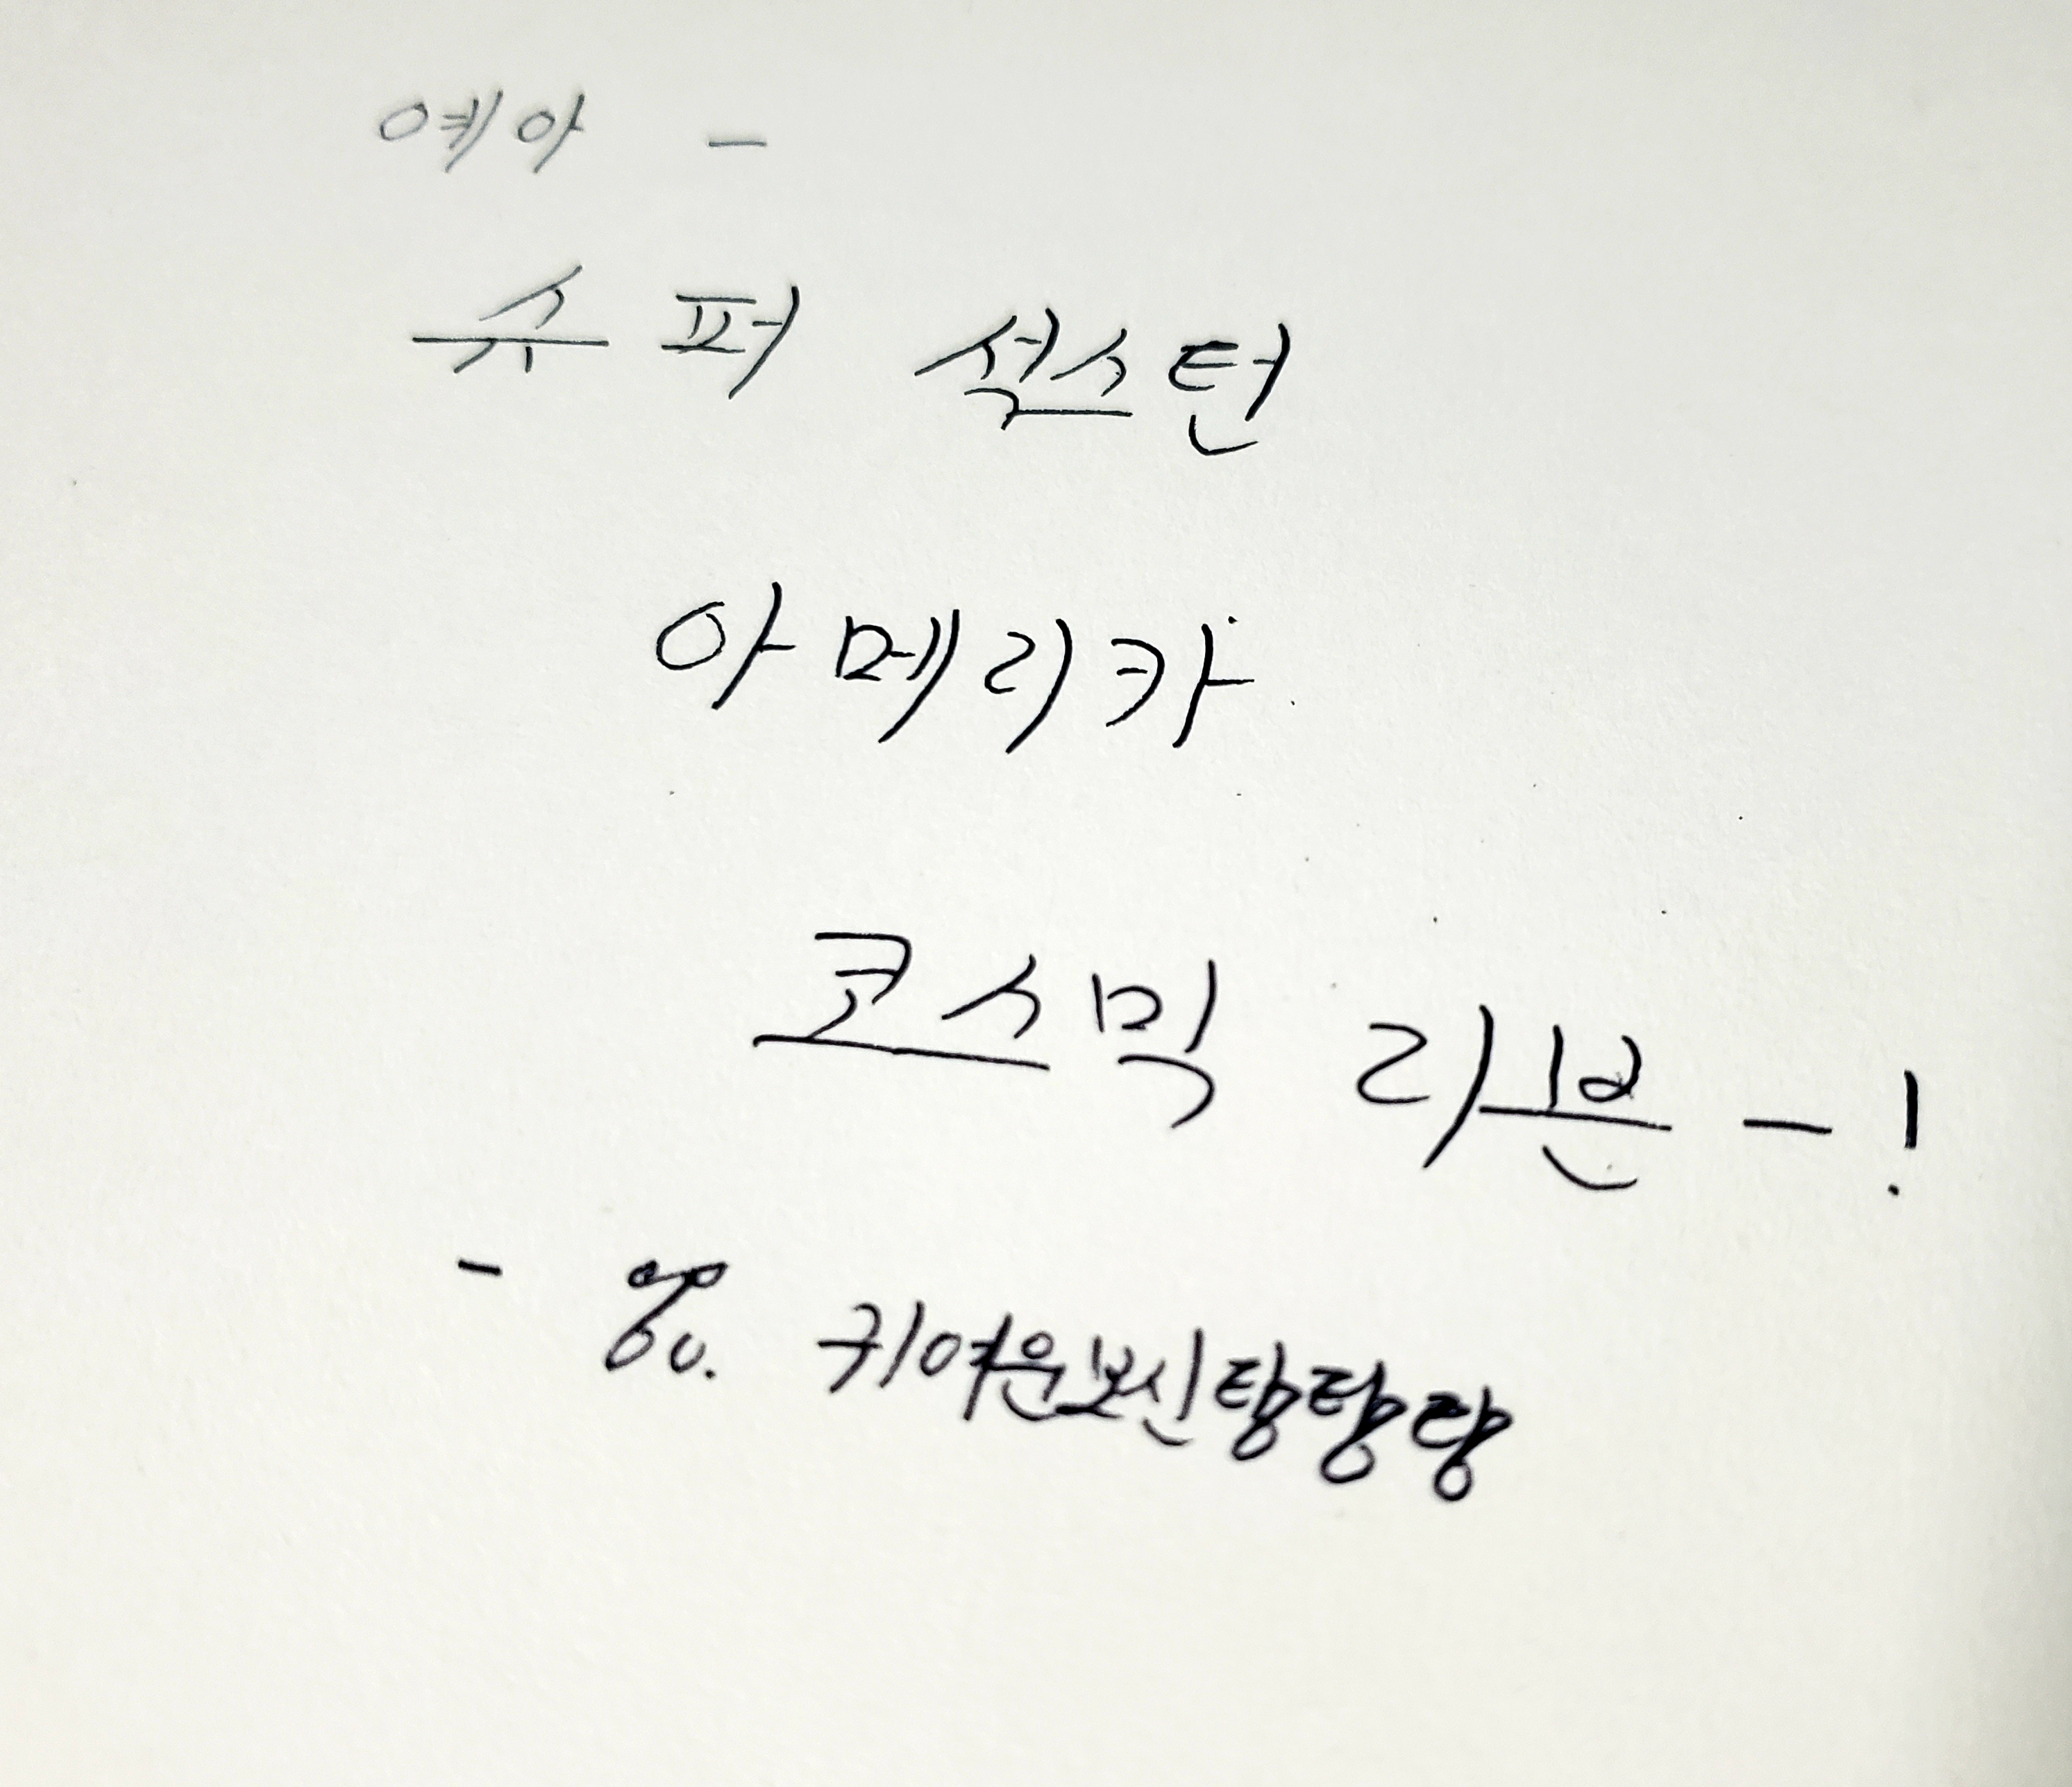 예아 -
슈퍼 섹스턴
아메리카
코스믹 리본 - !
- %. 귀여운보신탕탕탕